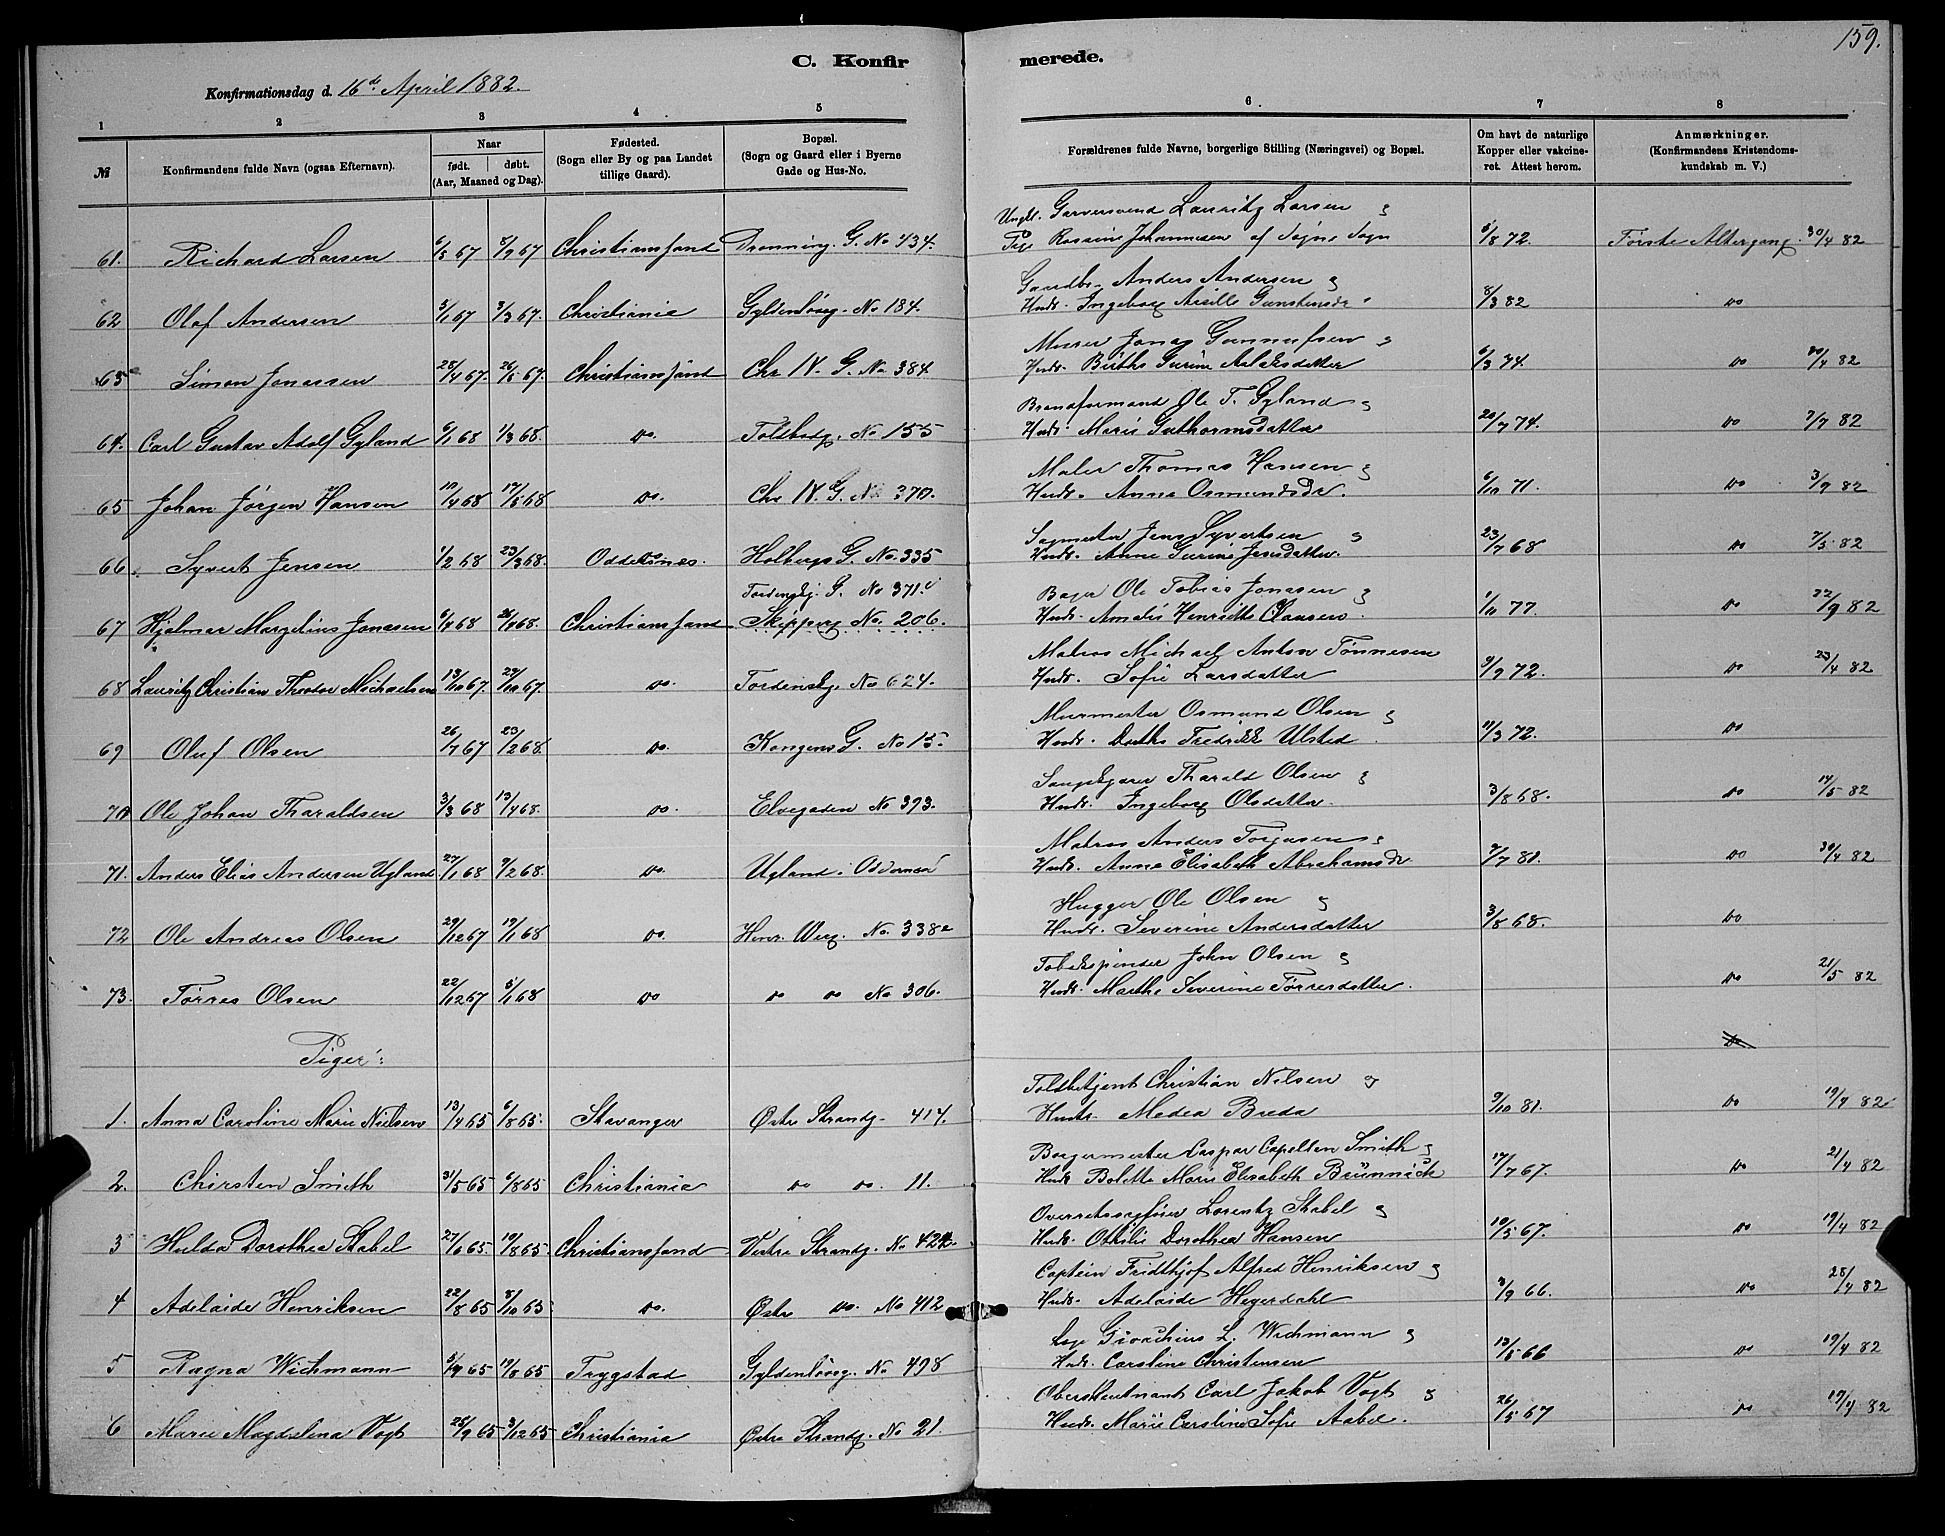 159.
C. Konfirmerede.
Konfirmationsdag d. 16de April 1882.
1 2 3 4 5 6. 7 8
№ Konfirmandens fulde Navn (ogsaa Efternavn). Naar født. døbt. (Aar, Maaned og Dag). Fødested. (Sogn eller By og paa Landet tillige Gaard). Bopæl. (Sogn og Gaard eller i Byerne Gade og Hus-No. Forældrenes fulde Navne, borgerlige Stilling (Næringsvei) og Bopæl. Om havt de naturlige Kopper eller vakcineret. Attest herom. Anmærkninger. (Konfirmandens Kristendomskundskab m. V.)
Ungk. Garversvend Lauritz Larsen &
61. Richard Larsen 6/5 67 8/9 67 Christianssand Dronning. G. No 434. Pige Rosine Johannesen af Søgne Sogn 5/8 72. Første Altergang. 30/4 82
Gaardbr. Anders Andersen &
62 Olaf Andersen 5/1 67 3/3 67. Christiania Gyldenløveg. No 184. Hust. Ingeborg Gunstensdr. 8/3 82 do
Murer Jonas Gunnufsen &
63 Simon Jonassen 28/4 67. 26/5 67. Christianssand Chr IV. G. No 384. Hust. Birthe Gurine Aslaksdatter 6/3 74. do 30/4 82
Brandformand Ole T. Gyland &
64. Carl Gustav Adolf Gyland 6/1 68 1/3 68. do. Toldbodg. No 155 Hust. Marie Guthormsdatter 20/7 74. do 7/7 82
Maler Thomas Hansen &
65 Johan Jørgen Hansen 10/4 68 17/5 68 do. Chr IV. G. No 370. Hust. Anna Osmundsdr. 6/10 71. do 3/9 82
Sagmester Jens Syvertsen &
66. Syvert Jensen 1/2 68 23/3 68. Oddernes. Holbergs G. No 335 Hust. Anne Gurine Jensdatter. 23/7 68 do 7/5 82
Tordenskj. G. No 371
Bager Ole Tobias Jonassen &
67 Hjalmar Margelius Jonassen 6/4 68 26/4 68. Christianssand Skipperg. No. 206. Hust. Amalie Henriette Clausen 1/10 77. do 22/9 82
Matros Michael Anton Tønnesen
68 Lauritz Christian Theodor Michaelsen 13/10 67. 29/10 67. do. Tordenskj. No 624. Hust. Sofie Larsdatter 9/9 72. do 23/4 82
Murmester Osmund Olsen &
69 Oluf Olsen 26/7 67 23/2 68. do. Kongens G. No 15. Hust. Dorthe Fredrikke Ulsted 11/3 72. do
Tharald Olsen &
70 Ole Johan Tharaldsen 3/3 68 13/4 68. do. Elvegaden No 393. Hust. Ingeborg Olsdatter. 3/8 68. do 14/5 82
Matros Anders Torjusen &
71. Anders Elias Andersen Ugland 27/1 68 9/2 68. do. Ugland i Oddernes Hust. Anne Elisabeth Abrahamsdr 7/7 81. do 30/4 82
Hugger Ole Olsen &
72 Ole Andreas Olsen 29/12 67 19/1 68 do. Henr. Werg. No. 338 Hust. Severine Andersdatter 3/8 68. do
Tobakspinder John Olsen &
73. Torres Olsen 22/12 67 5/1 68 do do do No 306. Hust. Marthe Severine Torresdatter. do 21/5 82
Piger:
Toldbetjent Christian Nilsen &
1. Anna Caroline Marie Nielsen 13/4 65 6/8 65. Stavanger Østre Strandg. 414. Hust. Medea Breda 9/10 81. do 19/4 82
Borgermester Caspar Capellen Smith &
2. Chirsten Smith 31/5 65 6/8 65 Christiania do do. 11. Hust. Bolette Marie Elisabeth Brünnich 17/7 67. do 21/4 82
Overretssagfører Lorentz Stabel &
3 Hulda Dorothea Stabel 27/6 65. 19/8 65. Christianssand Vestre Strandg. No 422. Hust. Othilie Dorothea Hansen 10/5 67. do 19/4 82
Captein Fridthjof Alfred Henriksen &
4 Adelaide Henriksen 22/8 65 8/10 65 do. Østre do. No 412 Hust. Adelaide Heyerdahl 3/9 66. do 28/4 82
Læge Gioachius L. Wichmann &
5 Ragna Wichmann 5/9 65 19/8 65 Trygstad Gyldenløveg. No 498 Hust. Caroline Christensen 13/5 66 do 19/4 82
Oberstlieutnant Carl Jakob Vogt &
6 Marie Magdalena Vogt 25/9 65 3/12 65 Christiania Østre Strandg. No 21. Hust. Marie Caroline Sofie Aabel. 26/5 67 do 19/4 82